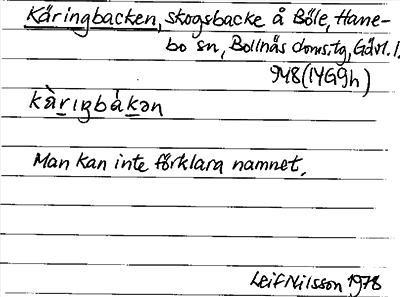 Käringbacken, skogsbacke å Böle, Hane-
bo sn, Bollnäs doms.tg, Gävl. l.
948 (14G9h)
kàrıgbákən
Man kan inte förklara namnet.
Leif Nilsson 1978